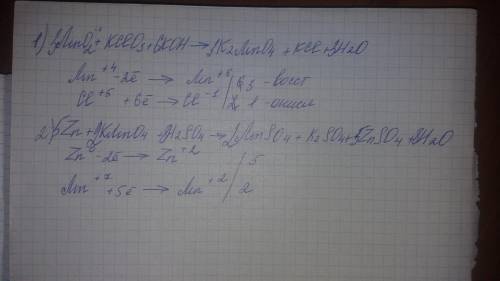 1) 3MnO2 + KClO3 + 6KOH → 3K2MnO4 + KCl + 3H2O
Mn+4 -2ē → Mn+6 | 6 3 - восст
Cl+5 + 6ē → Cl-1 | 2 1 - окисл
2) 5Zn + 2KMnO4 + 8H2SO4 → 2MnSO4 + K2SO4 + 5ZnSO4 + 8H2O
Zn0 -2ē → Zn+2 | 5
Mn+7 +5ē → Mn+2 | 2